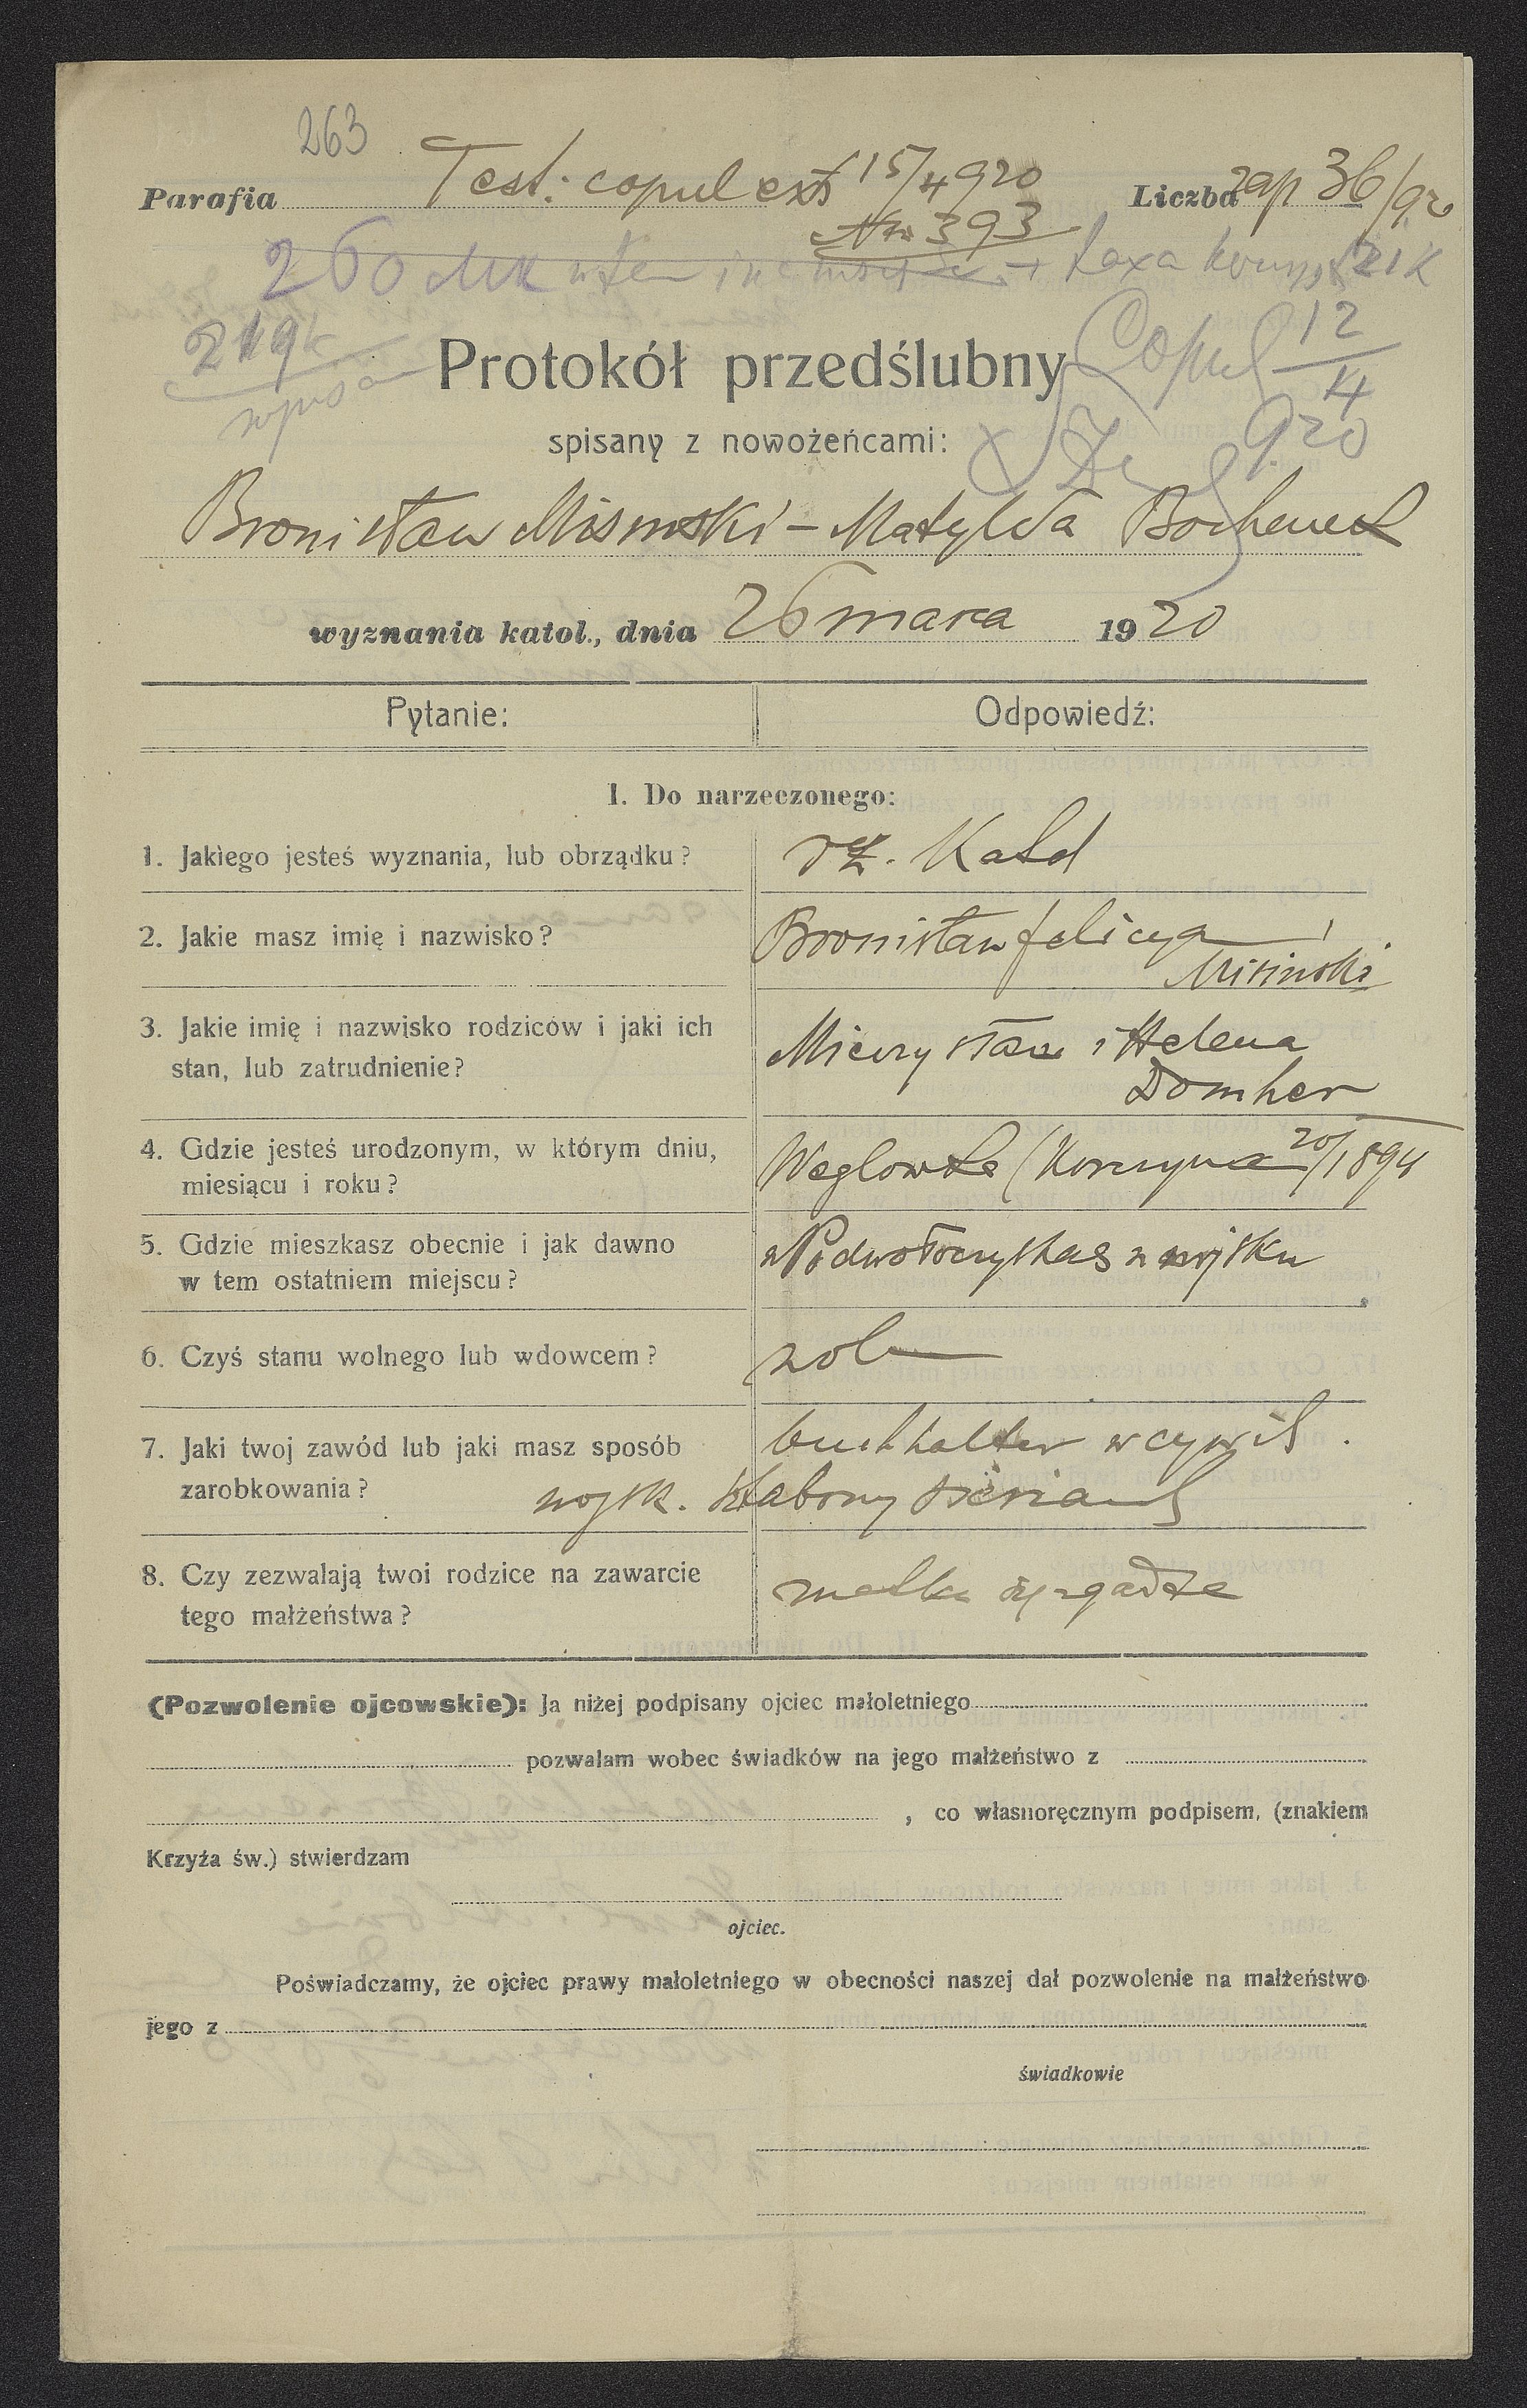 263
Parafia Test: copul exts 15/4 920 Liczba zap 36/920
Nr 393
260 Mk + taxa 21 K
219 k
Protokół przedślubny
Copul 12/4 920
spisany z nowożeńcami:
Bronisław Misinski – Matylda Bochenek
wyznania katol., dnia 26 marca 1920
Pytanie: Odpowiedź:
I. Do narzeczonego:
1. Jakiego jesteś wyznania, lub obrządku? rz. Katol
2. Jakie masz imię i nazwisko? Bronisław felicyan
Misinski
3. Jakie imię i nazwisko rodziców i jaki ich Mieczysław i Helena
stan, lub zatrudnienie? Domher
4. Gdzie jesteś urodzonym, w którym dniu, Węglowka (Korczyna 1894
miesiącu i roku?
5. Gdzie mieszkasz obecnie i jak dawno w Podwołoczyskas w wojsku
w tem ostatniem miejscu?
6. Czyś stanu wolnego lub wdowcem? wol
7. Jaki twoj zawód lub jaki masz sposób buchhalter w cywil.
zarobkowania? wojsk.
8. Czy zezwalają twoi rodzice na zawarcie matka się zgadza
tego małżeństwa?
(Pozwolenie ojcowskie): Ja niżej podpisany ojciec małoletniego
pozwalam wobec świadków na jego małżeństwo z
, co własnoręcznym podpisem, (znakiem
Krzyża św.) stwierdzam
ojciec.
Poświadczamy, że ojciec prawy małoletniego w obecności naszej dał pozwolenie na małżeństwo
jego z
świadkowie